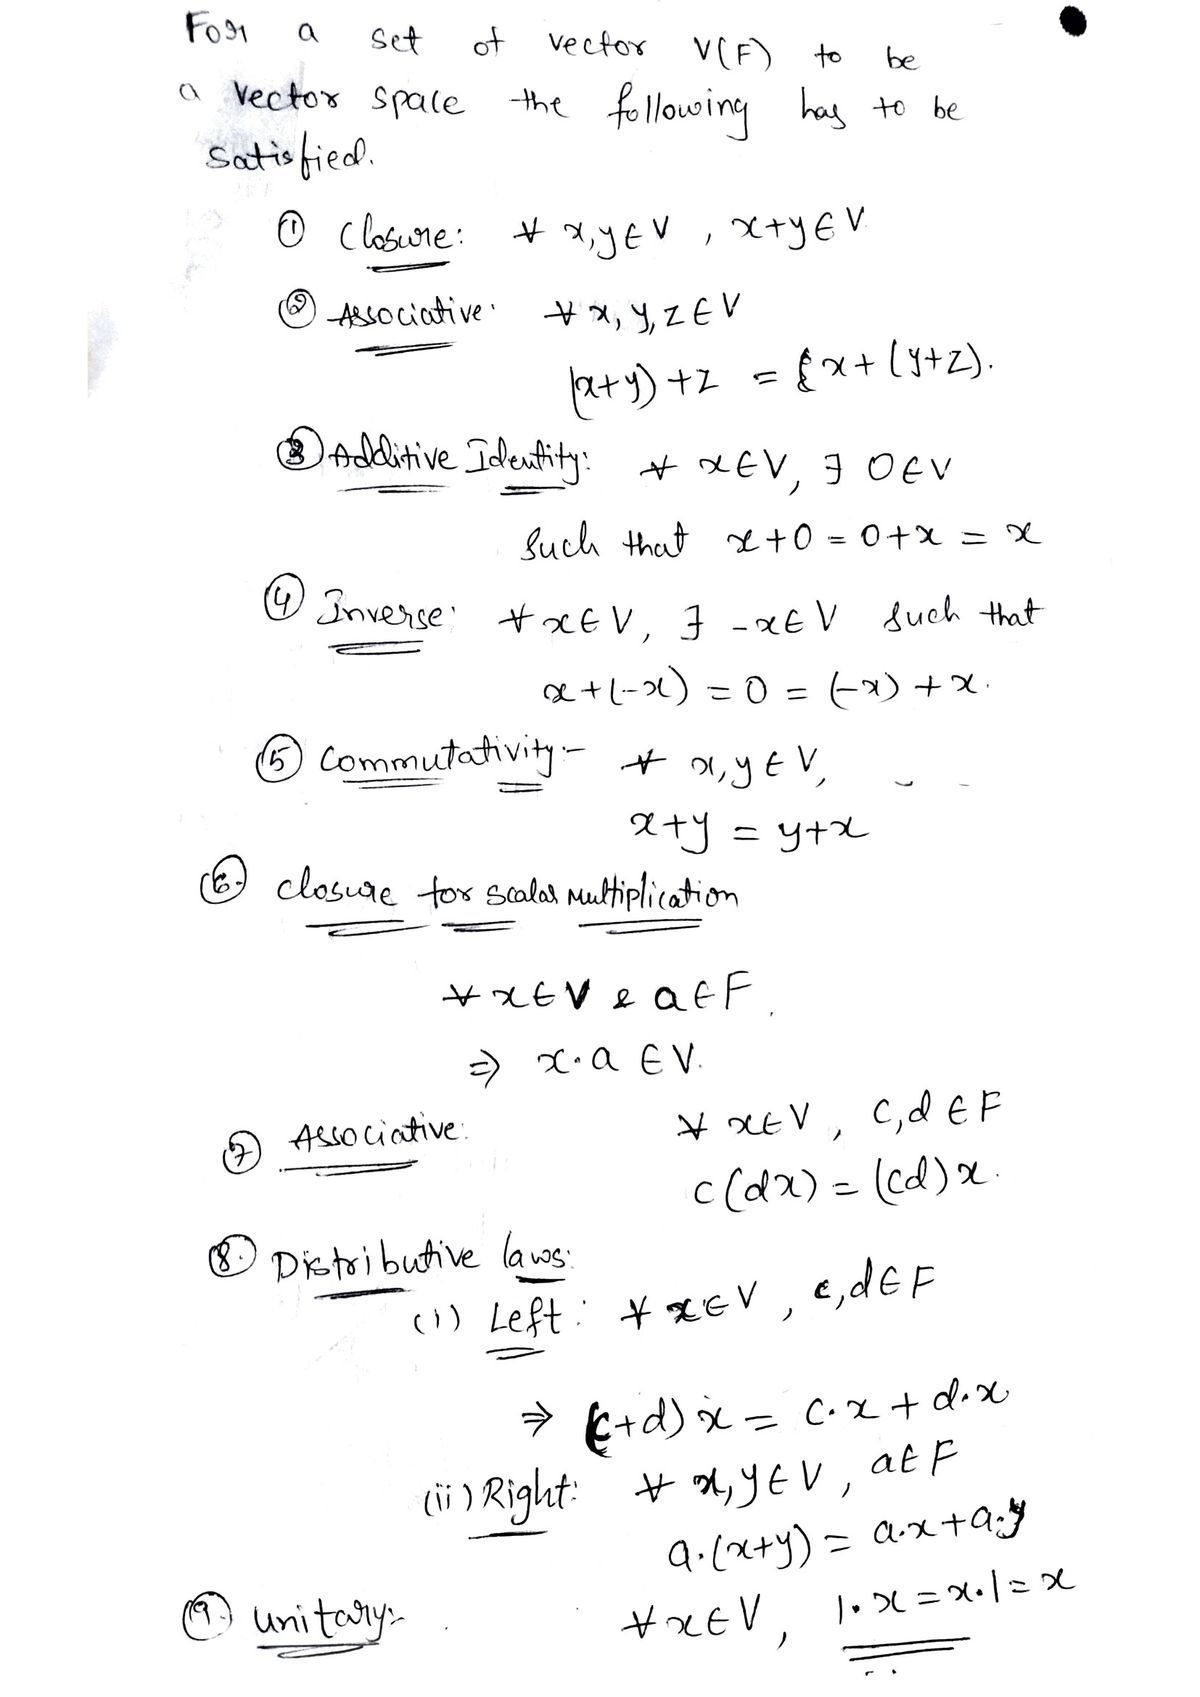 For a set of vector V(F) to be
a vector space the following has to be
satisfied.
① Closure: ∀ x,y∈V , x+y∈V
② Associative: ∀ x, y, z∈V
(x+y)+z = x+(y+z).
③ Additive Identity: ∀ x∈V, ∃ 0∈V
such that x+0 = 0+x = x
④ Inverse: ∀ x∈V, ∃ -x∈V such that
x+(-x) = 0 = (-x)+x.
⑤ Commutativity:- ∀ x,y∈V,
x+y = y+x
⑥. closure for scalar multiplication
∀ x∈V & a∈F.
⇒ x·a ∈V.
⑦ Associative: ∀ x∈V, c,d ∈F
c(dx) = (cd)x.
⑧. Distributive laws:
(i) Left: ∀ x∈V, c,d∈F
⇒ (c+d)x = c·x + d·x
(ii) Right: ∀ x,y∈V, a∈F
a·(x+y) = a·x+a·y
⑨. unitary:- ∀x∈V, 1·x = x·1 = x